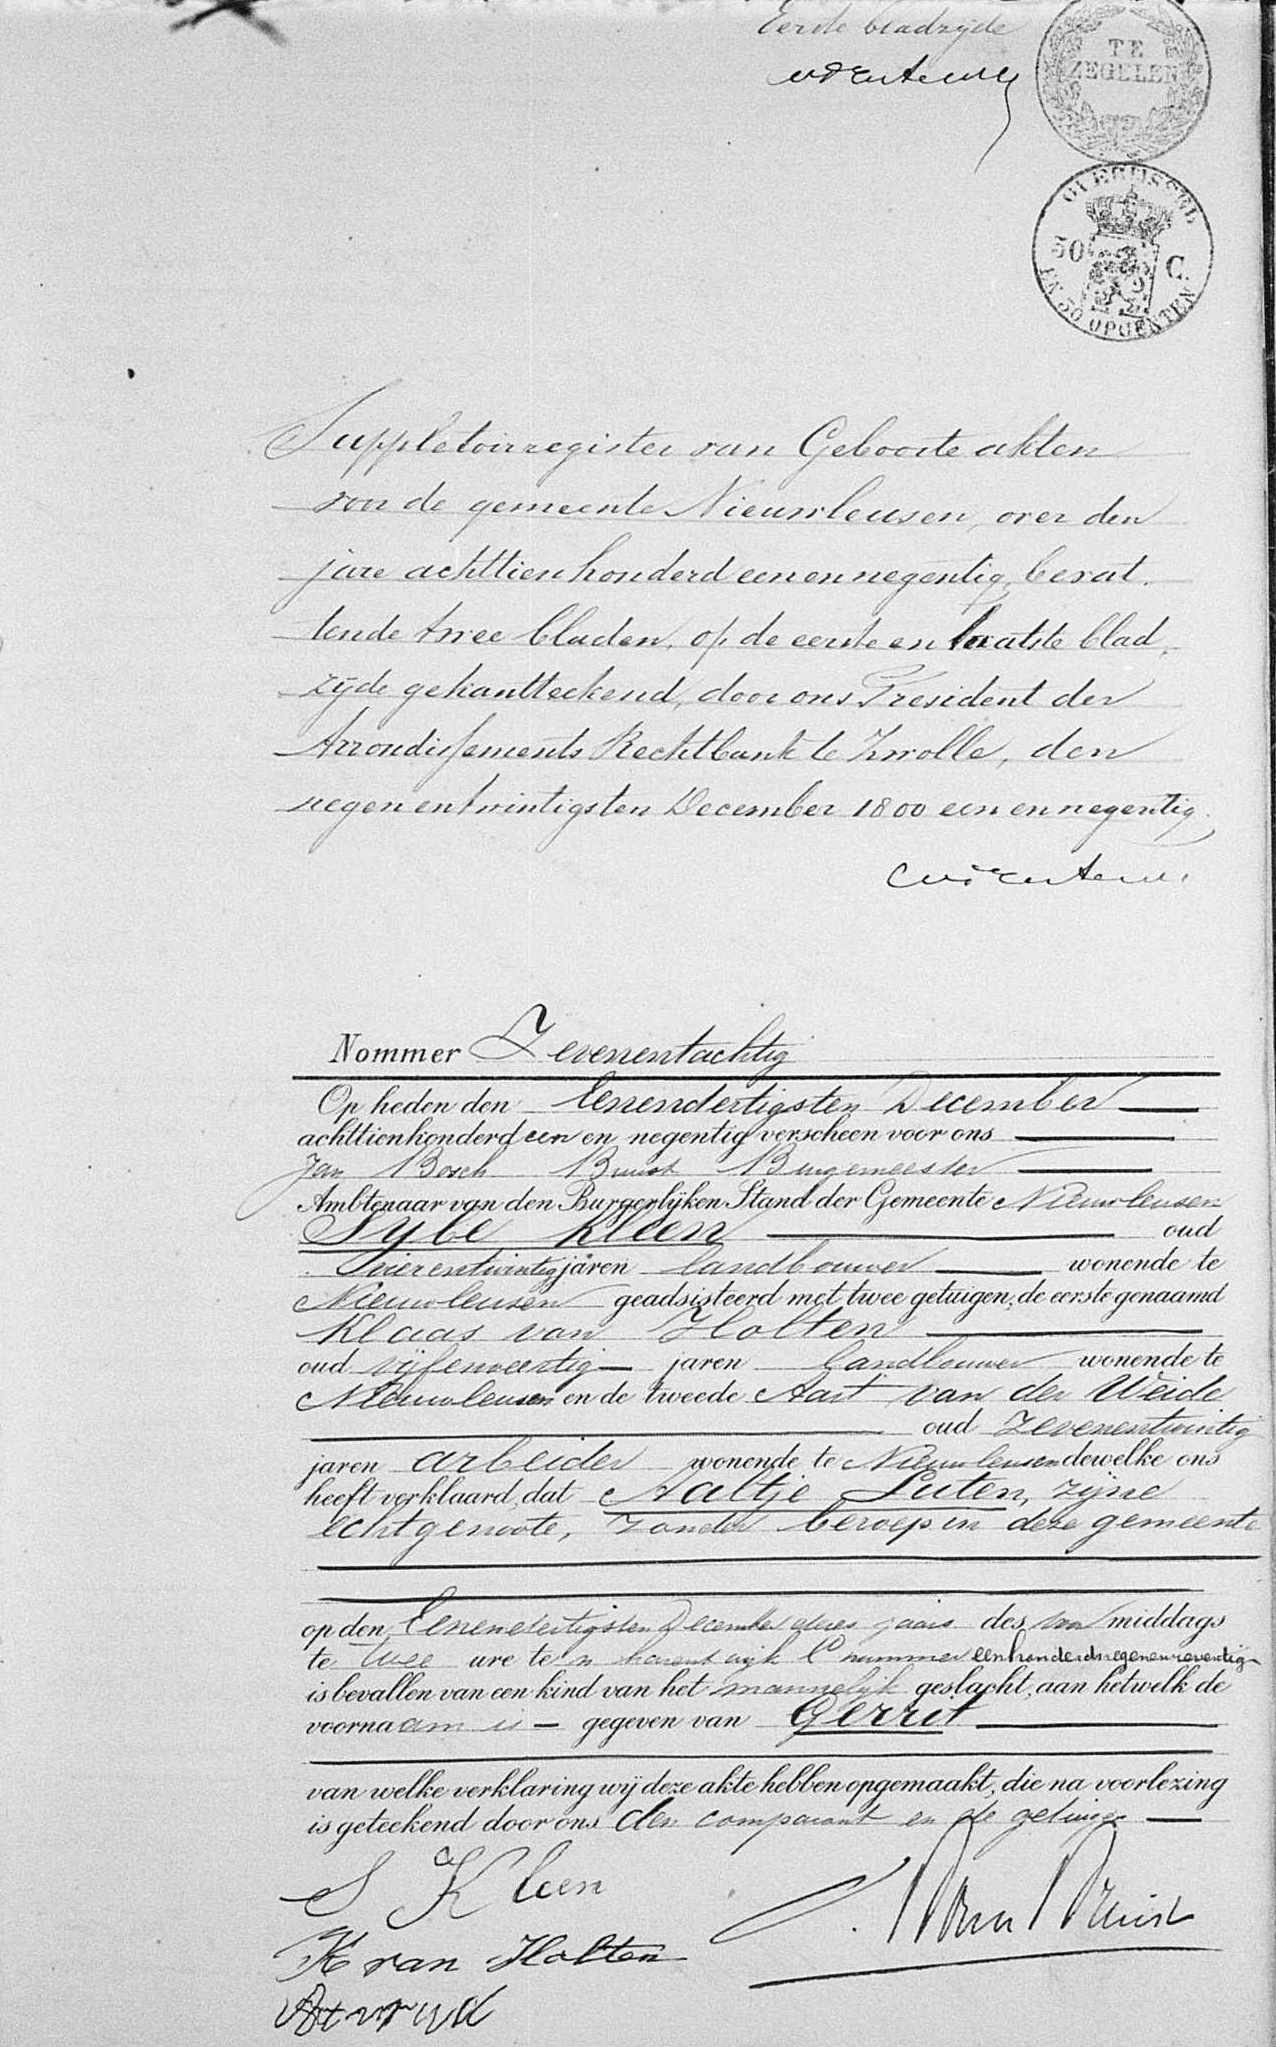 Eerste bladzijde
TE
ZEGELEN
OVERIJSSEL
50 C.
EN 50 OPCENTEN
Suppletoirregister van Geboorte akten
voor de gemeente Nieuwleusen, over den
jare achttienhonderd een en negentig, bevat-
tende twee bladen, op de eerste en laatste blad-
zijde gekantteekend, door ons President der
Arrondissements Rechtbank te Zwolle, den
negenentwintigsten December 1800 een en negentig.
Nommer Zevenentachtig
Op heden den Eenendertigsten December
achttienhonderd een en negentig verscheen voor ons
Jan Bosch Bruist Burgemeester
Ambtenaar van den Burgerlijken Stand der Gemeente Nieuwleusen
Sybe Kleen oud
vierentwintig jaren landbouwer wonende te
Nieuwleusen geadsisteerd met twee getuigen, de eerste genaamd
Klaas van Holten
oud vijfenveertig jaren landbouwer wonende te
Nieuwleusen en de tweede Aart van der Weide
oud zevenentwintig
jaren arbeider wonende te Nieuwleusen dewelke ons
heeft verklaard, dat Aaltje Luten, zijne
echtgenoote, zonder beroep in deze gemeente
op den Eenendertigsten December dezes jaars des voormiddags
te twee ure te n harent wijk C nummer eenhonderdnegenenveertig
is bevallen van een kind van het mannelijk geslacht, aan hetwelk de
voornaam is gegeven van Gerrit
van welke verklaring wij deze akte hebben opgemaakt, die na voorlezing
is geteekend door ons den comparant en de getuigen
S Kleen
K van Holten